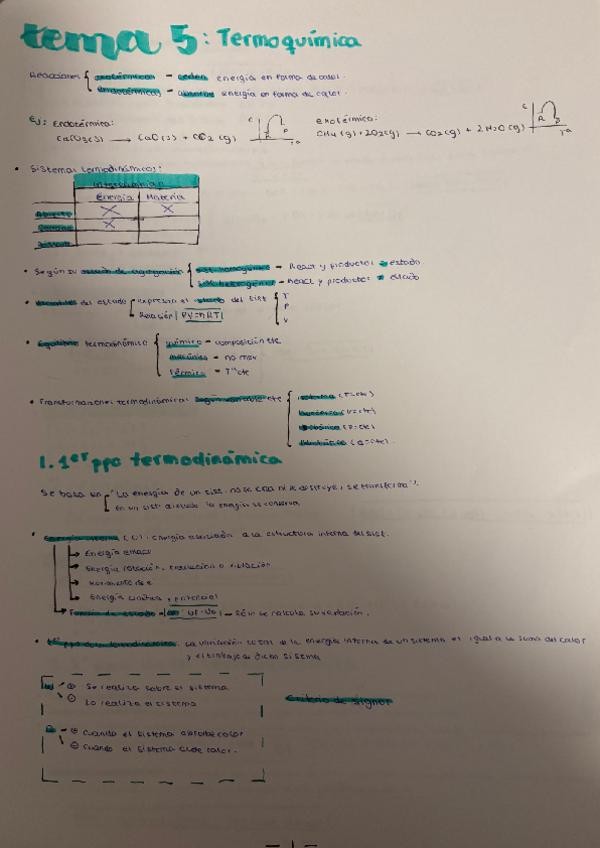 tema 5: Termoquímica
Reacciones { exotérmicas - ceden energía en forma de calor.
endotérmicas - absorben energía en forma de calor.
Ej: Endotérmica:
exotérmica:
CaCO3(s) → CaO(s) + CO2(g)
CH4(g) + 2O2(g) → CO2(g) + 2H2O(g)
• Sistemas termodinámicos:
Intercambian
Energía Materia
Abierto X X
Cerrado X
Aislado
• Según su estado de agregación { sist. homogéneo - React y productos = estado.
sist. heterogéneo - React y productos ≠ estado
• Variables del estado { expresan el estado del sist { T
Relación | PV=nRT | P
V
• Equilibrio termodinámico { químico - composición cte
mecánico - no mov
térmico - Tª cte
• Transformaciones termodinámicas según variable cte { isoterma (T=cte)
isocórica (V=cte)
isobárica (P=cte)
adiabática (Q=cte).
1. 1er ppo termodinámica
Se basa en { "La energía de un sist. no se crea ni se destruye, se transforma".
En un sist. aislado la energía se conserva
• Energía interna (U): energía asociada a la estructura interna del sist.
→ Energía enlace
→ Energía rotación, traslación o vibración
→ Movimiento de e-
→ Energía cinética y potencial
→ Función de estado - - Sólo se calcula su variación.
• 1er ppo de la termodinámica: La variación total de la energía interna de un sistema es igual a la suma del calor
y el trabajo de dicho sistema
W → ⊕ Se realiza sobre el sistema
⊖ Lo realiza el sistema
Criterio de signos
Q → ⊕ Cuando el sistema absorbe calor
⊖ Cuando el sistema cede calor.